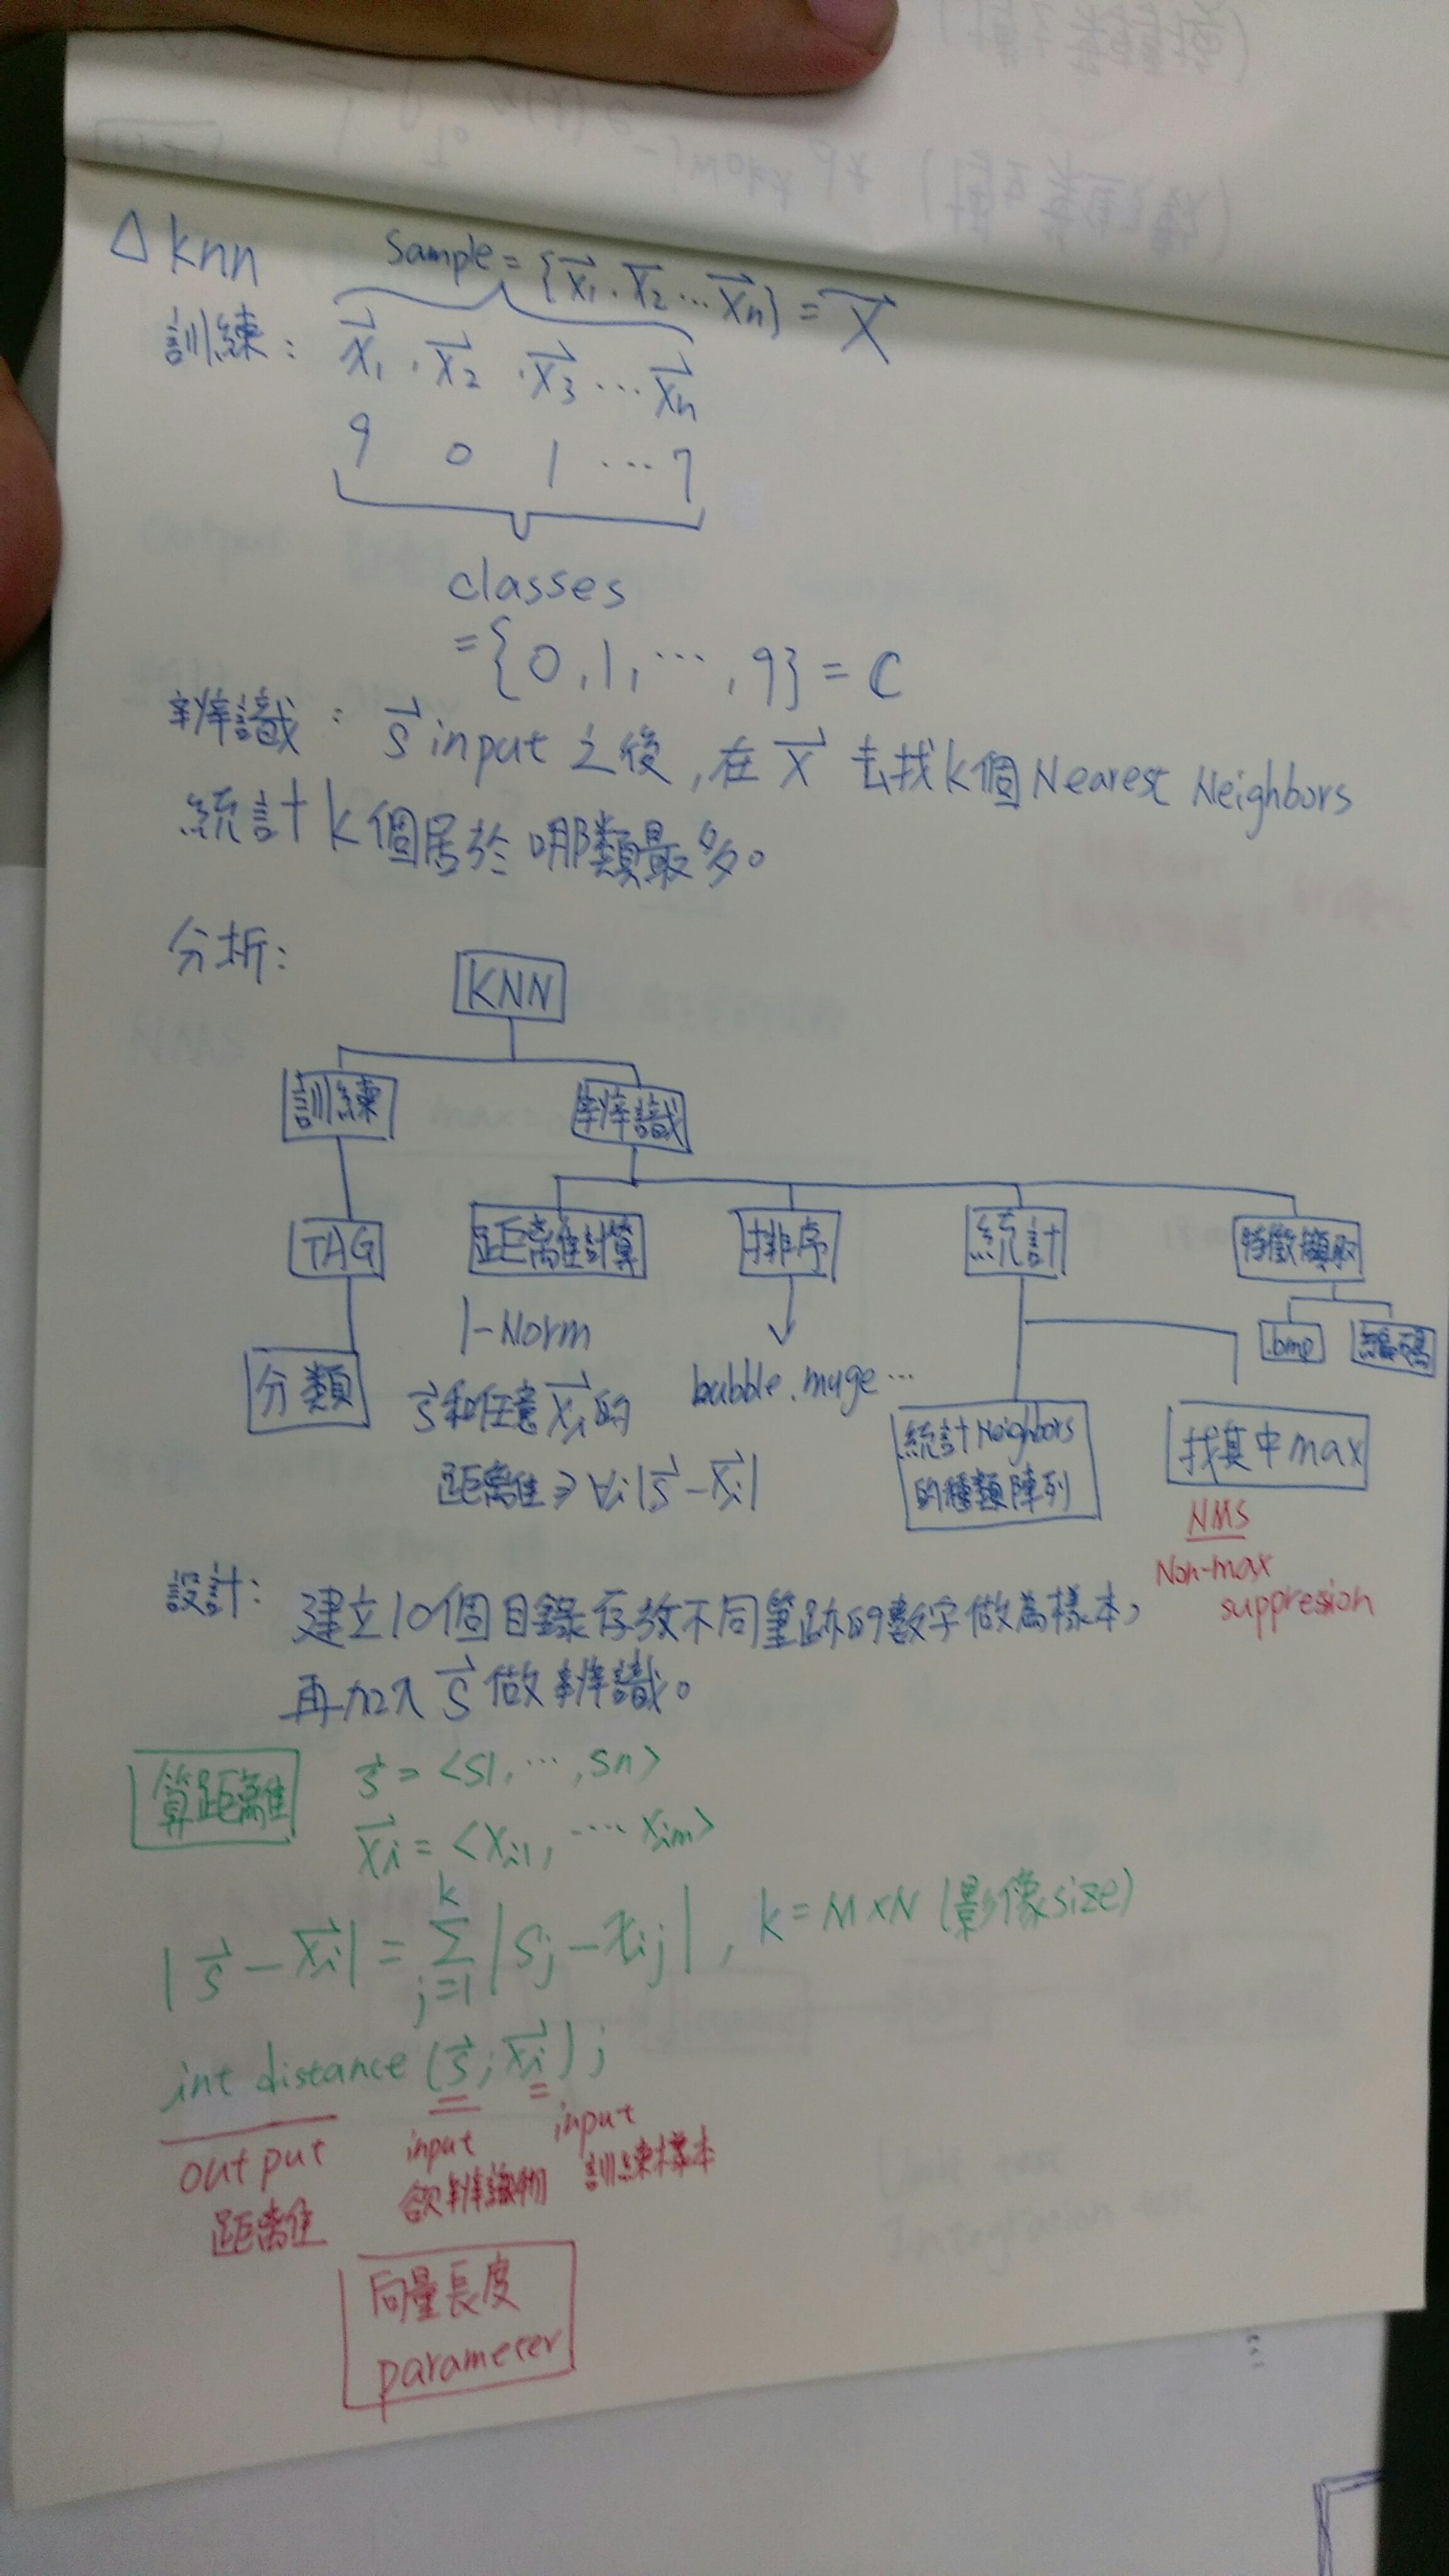 △ knn
Sample = {x₁, x₂ ... xₙ} = X
訓練: x₁, x₂, x₃ ... xₙ
9 0 1 ... 7
classes
= {0, 1, ..., 9} = C
辨識: s input 之後, 在 X 去找 k個 Nearest Neighbors
統計 k個居於哪類最多。
分析:
KNN
訓練 辨識
TAG 距離計算 排序 統計 特徵擷取
.bmp 編碼
分類
1-Norm
s和任意xᵢ的
距離 ⇒ ∀i |s - xᵢ|
bubble, muge ...
統計Neighbors
的種類陣列
找其中max
NMS
Non-max
suppression
設計: 建立10個目錄存放不同筆跡的數字做為樣本,
再加入 s 做辨識。
算距離
s = <s1, ..., sn>
xᵢ = <xᵢ₁, ... xᵢₘ>
|s - xᵢ| = Σ(j=1..k) |sⱼ - xᵢⱼ|, k = M×N (影像size)
int distance (s, xᵢ);
output
距離
input
欲辨識物
input
訓練樣本
向量長度
parameter